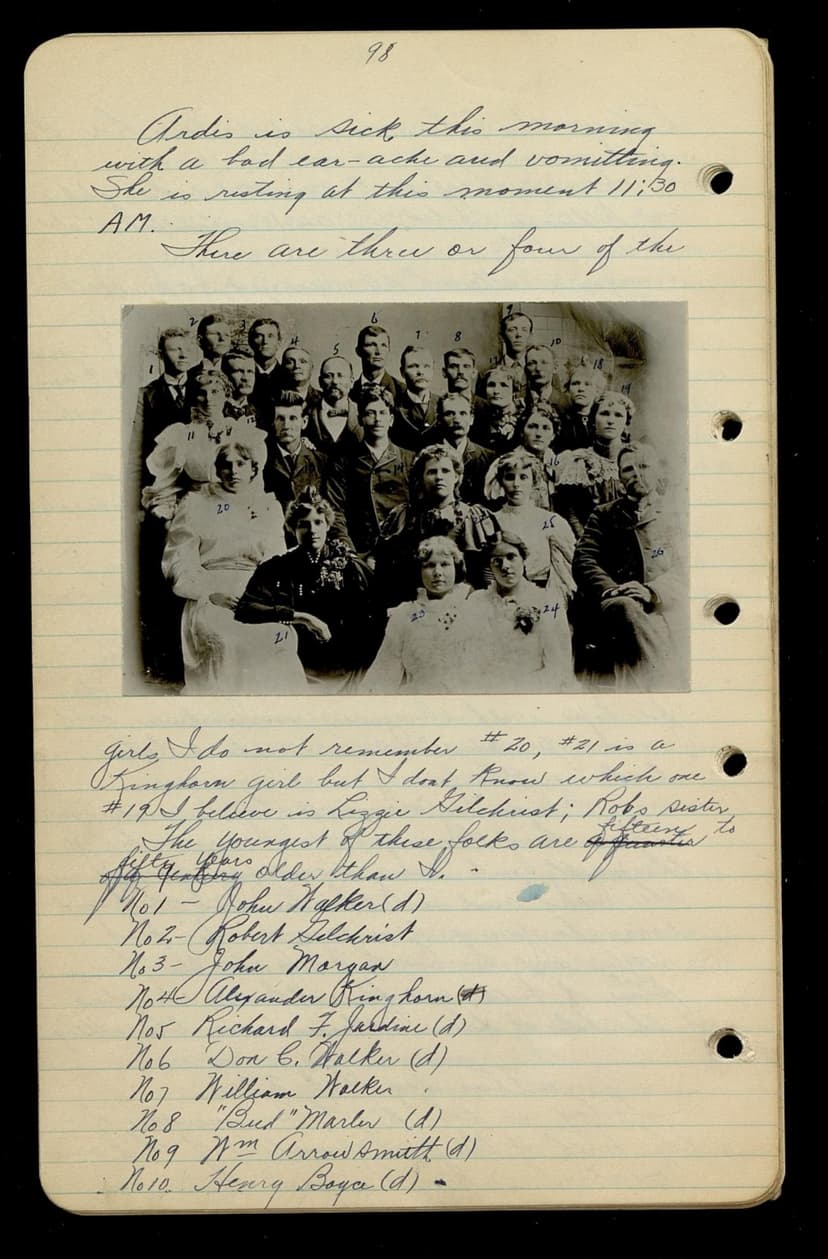 98
Ardis is sick this morning
with a bad ear-ache and vomitting.
She is resting at this moment 11:30
AM.
There are three or four of the
9
2
3
6
10
7
8
4
5
1
17
18
19
11
12
13
14
16
20
22
25
26
23
24
21
girls I do not remember #20, #21 is a
Kinghorn girl but I dont know which one
#19 I believe is Lizzie Gilchrist; Robs sister
fifteen
The youngest of these folks are a quarter to
fifty years
of a century older than I.
No1 - John Walker (d)
No2- Robert Gilchrist
No3- John Morgan
No4- Alexander Kinghorn (d)
No5 Richard F. Jardine (d)
No6 Don C. Walker (d)
No7 William Walker
No8 "Bud" Marler (d)
No9 Wm Arrowsmith (d)
No10. Henry Boyce (d)